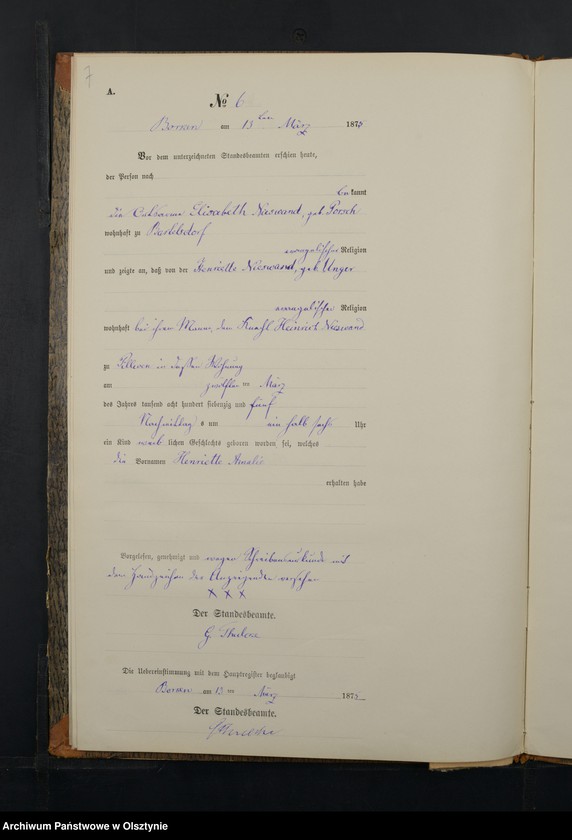 7
A.
№ 6
am 13 ten März 1875
Vor dem unterzeichneten Standesbeamten erschien heute,
der Persönlichkeit nach
bekannt
die Catharina Elisabeth Nieswand, geb. Porsch
wohnhaft zu
evangelischer Religion
und zeigte an, daß von der Henriette Nieswand, geb. Unger
evangelischer Religion
wohnhaft bei ihrem Manne, dem Knecht Heinrich Nieswand
zu in dessen Wohnung
am zwölften ten März
des Jahres tausend acht hundert siebenzig und fünf
Nachmittag s um ein halb sechs Uhr
ein Kind weib lichen Geschlechts geboren worden sei, welches
die Vornamen Henriette Amalie
erhalten habe
Vorgelesen, genehmigt und wegen Schreibensunkunde mit
dem Handzeichen der Anzeigenden versehen
x x x
Der Standesbeamte.
G.
Die Uebereinstimmung mit dem Hauptregister beglaubigt
am 13 ten März 1875
Der Standesbeamte.
Archiwum Państwowe w Olsztynie